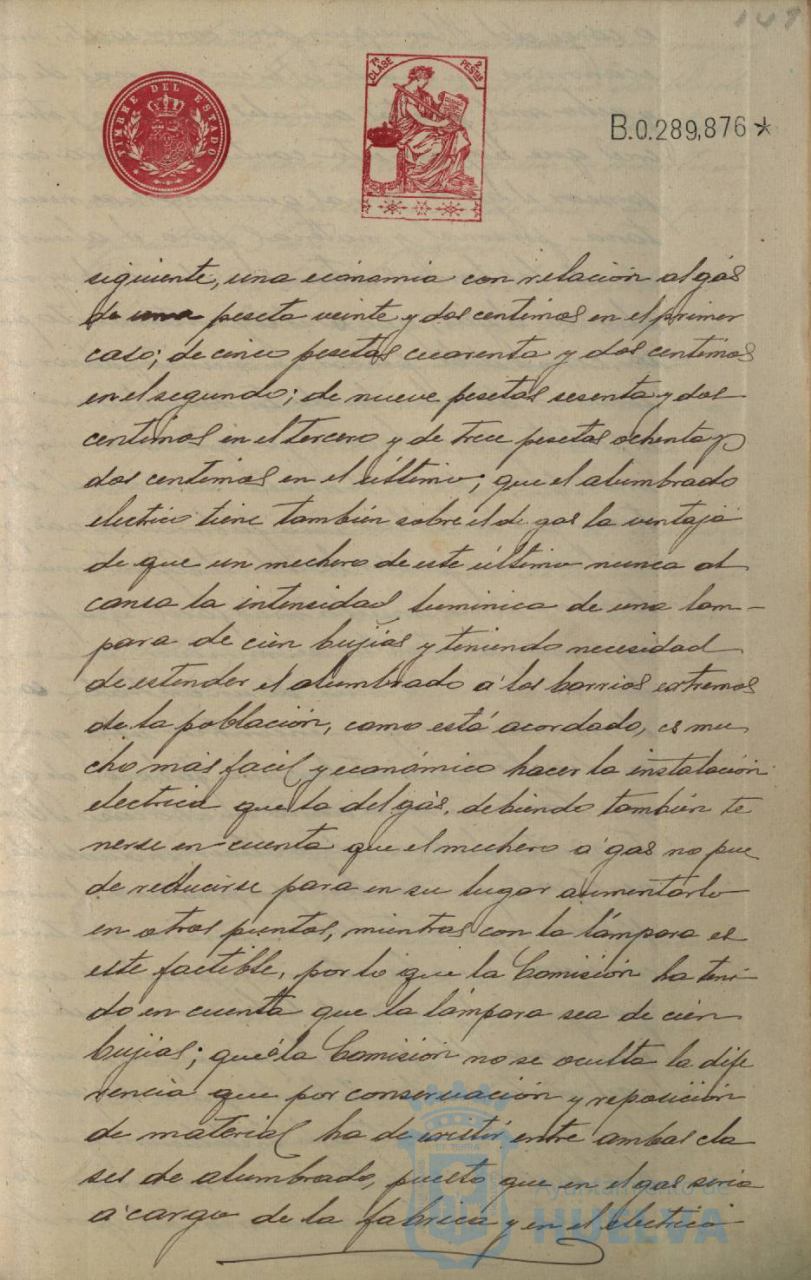 147
TIMBRE DEL ESTADO
7ª CLASE 2 PESTAS
B.0.289,876*
siguiente, una economia con relación al gás
de una peseta veinte y dos centimos en el primer
caso; de cinco pesetas cuarenta y dos centimos
en el segundo; de nueve pesetas sesenta y dos
centimos en el tercero y de trece pesetas ochenta y
dos centimos en el último; que el alumbrado
electrico tiene también sobre el de gas la ventaja
de que un mechero de este último nunca al
canza la intensidad luminica de una lam-
para de cien bujias y teniendo necesidad
de estender el alumbrado á los barrios extremos
de la población, como está acordado, es mu
cho más facil y económico hacer la instalación
electrica que la del gás, debiendo también te
nerse en cuenta que el mechero a gas no pue
de reducirse para en su lugar aumentarlo
en otros puntos, mientras con la lámpara es
este factible, por lo que la Comisión ha teni-
do en cuenta que la lámpara sea de cien
bujias; que á la Comisión no se oculta la dife
rencia que por conservación y reposición
de material ha de existir entre ambas cla
ses de alumbrado, puesto que en el gas seria
a cargo de la fabrica y en el electrico
Ayuntamiento de
HUELVA